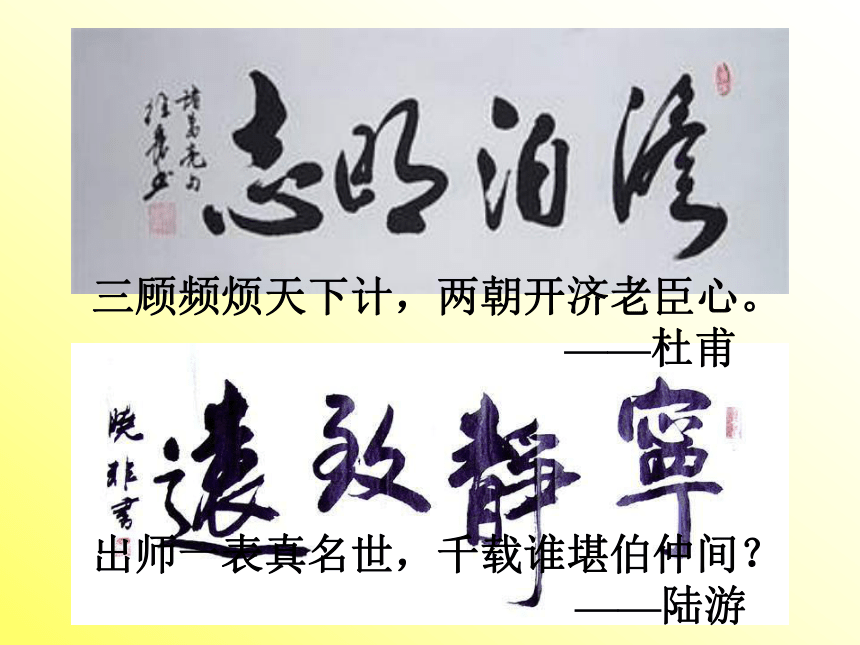 澹泊明志
诸葛亮句
三顾频烦天下计，两朝开济老臣心。
——杜甫
寧静致遠
晓非書
出师一表真名世，千载谁堪伯仲间？
——陆游